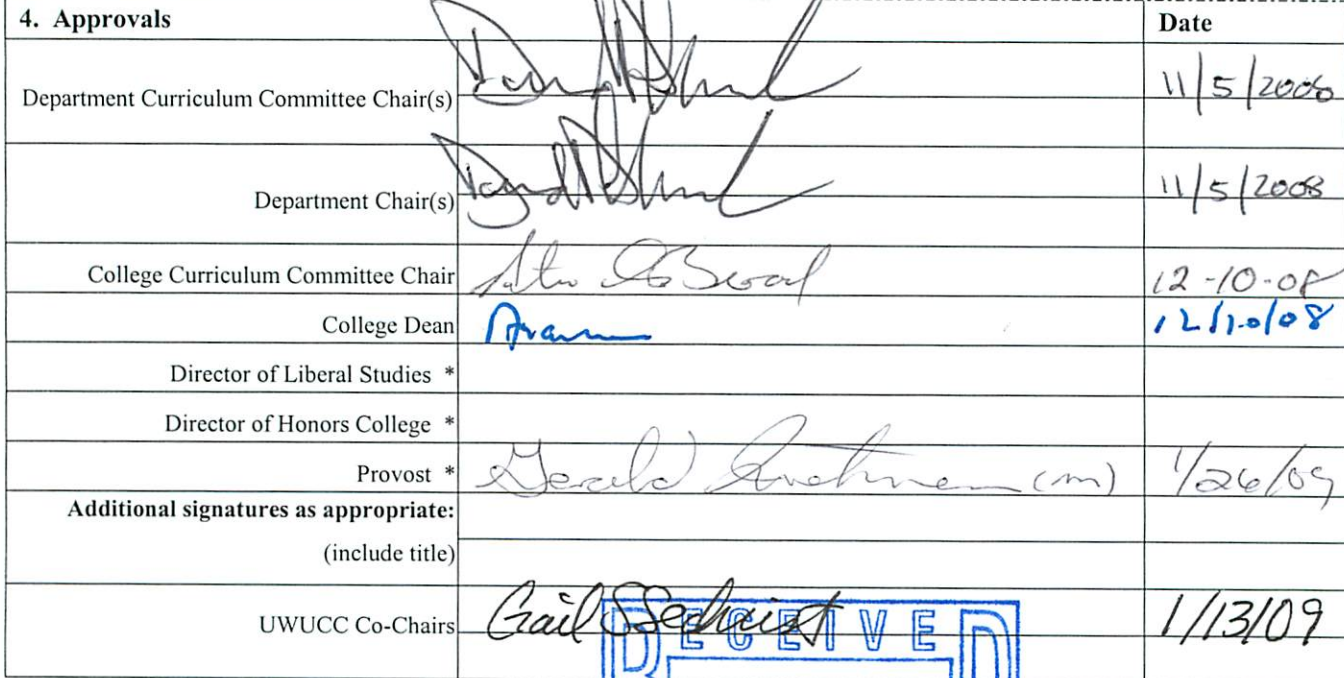 4. Approvals Date
Department Curriculum Committee Chair(s) 11/5/2008
Department Chair(s) 11/5/2008
College Curriculum Committee Chair 12-10-08
College Dean 12/10/08
Director of Liberal Studies *
Director of Honors College *
Provost * Gerald (m) 1/26/09
Additional signatures as appropriate:
(include title)
UWUCC Co-Chairs Gail Sechrist 1/13/09
RECEIVED